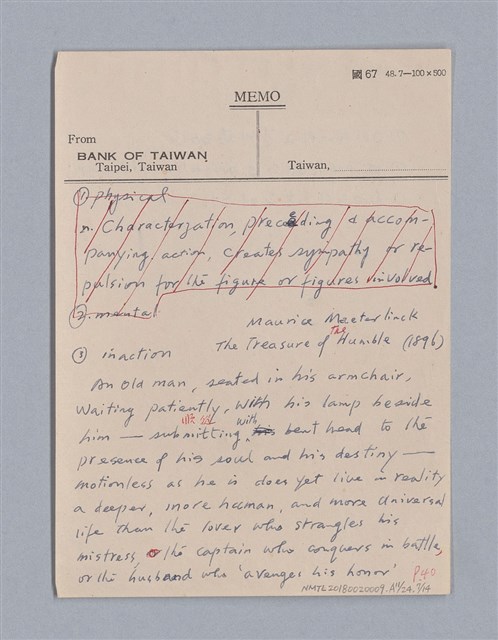 國 67 48. 7—100×500
MEMO
From
BANK OF TAIWAN
Taipei, Taiwan
Taiwan,
① physical
n. Characterization, preceding & accom-
panying action, creates sympathy or re-
pulsion for the figure or figures involved
② mental
Maurice Maeterlinck
The Treasure of the Humble (1896)
③ inaction
An old man, seated in his armchair,
waiting patiently, with his lamp beside
him — submitting with bent head to the
順從
presence of his soul and his destiny —
motionless as he is does yet live in reality
a deeper, more human, and more universal
life than the lover who strangles his
mistress, or the captain who conquers in battle,
or the husband who 'avenges his honor'
P.40
NMTL20180020009. A11/24. 7/14